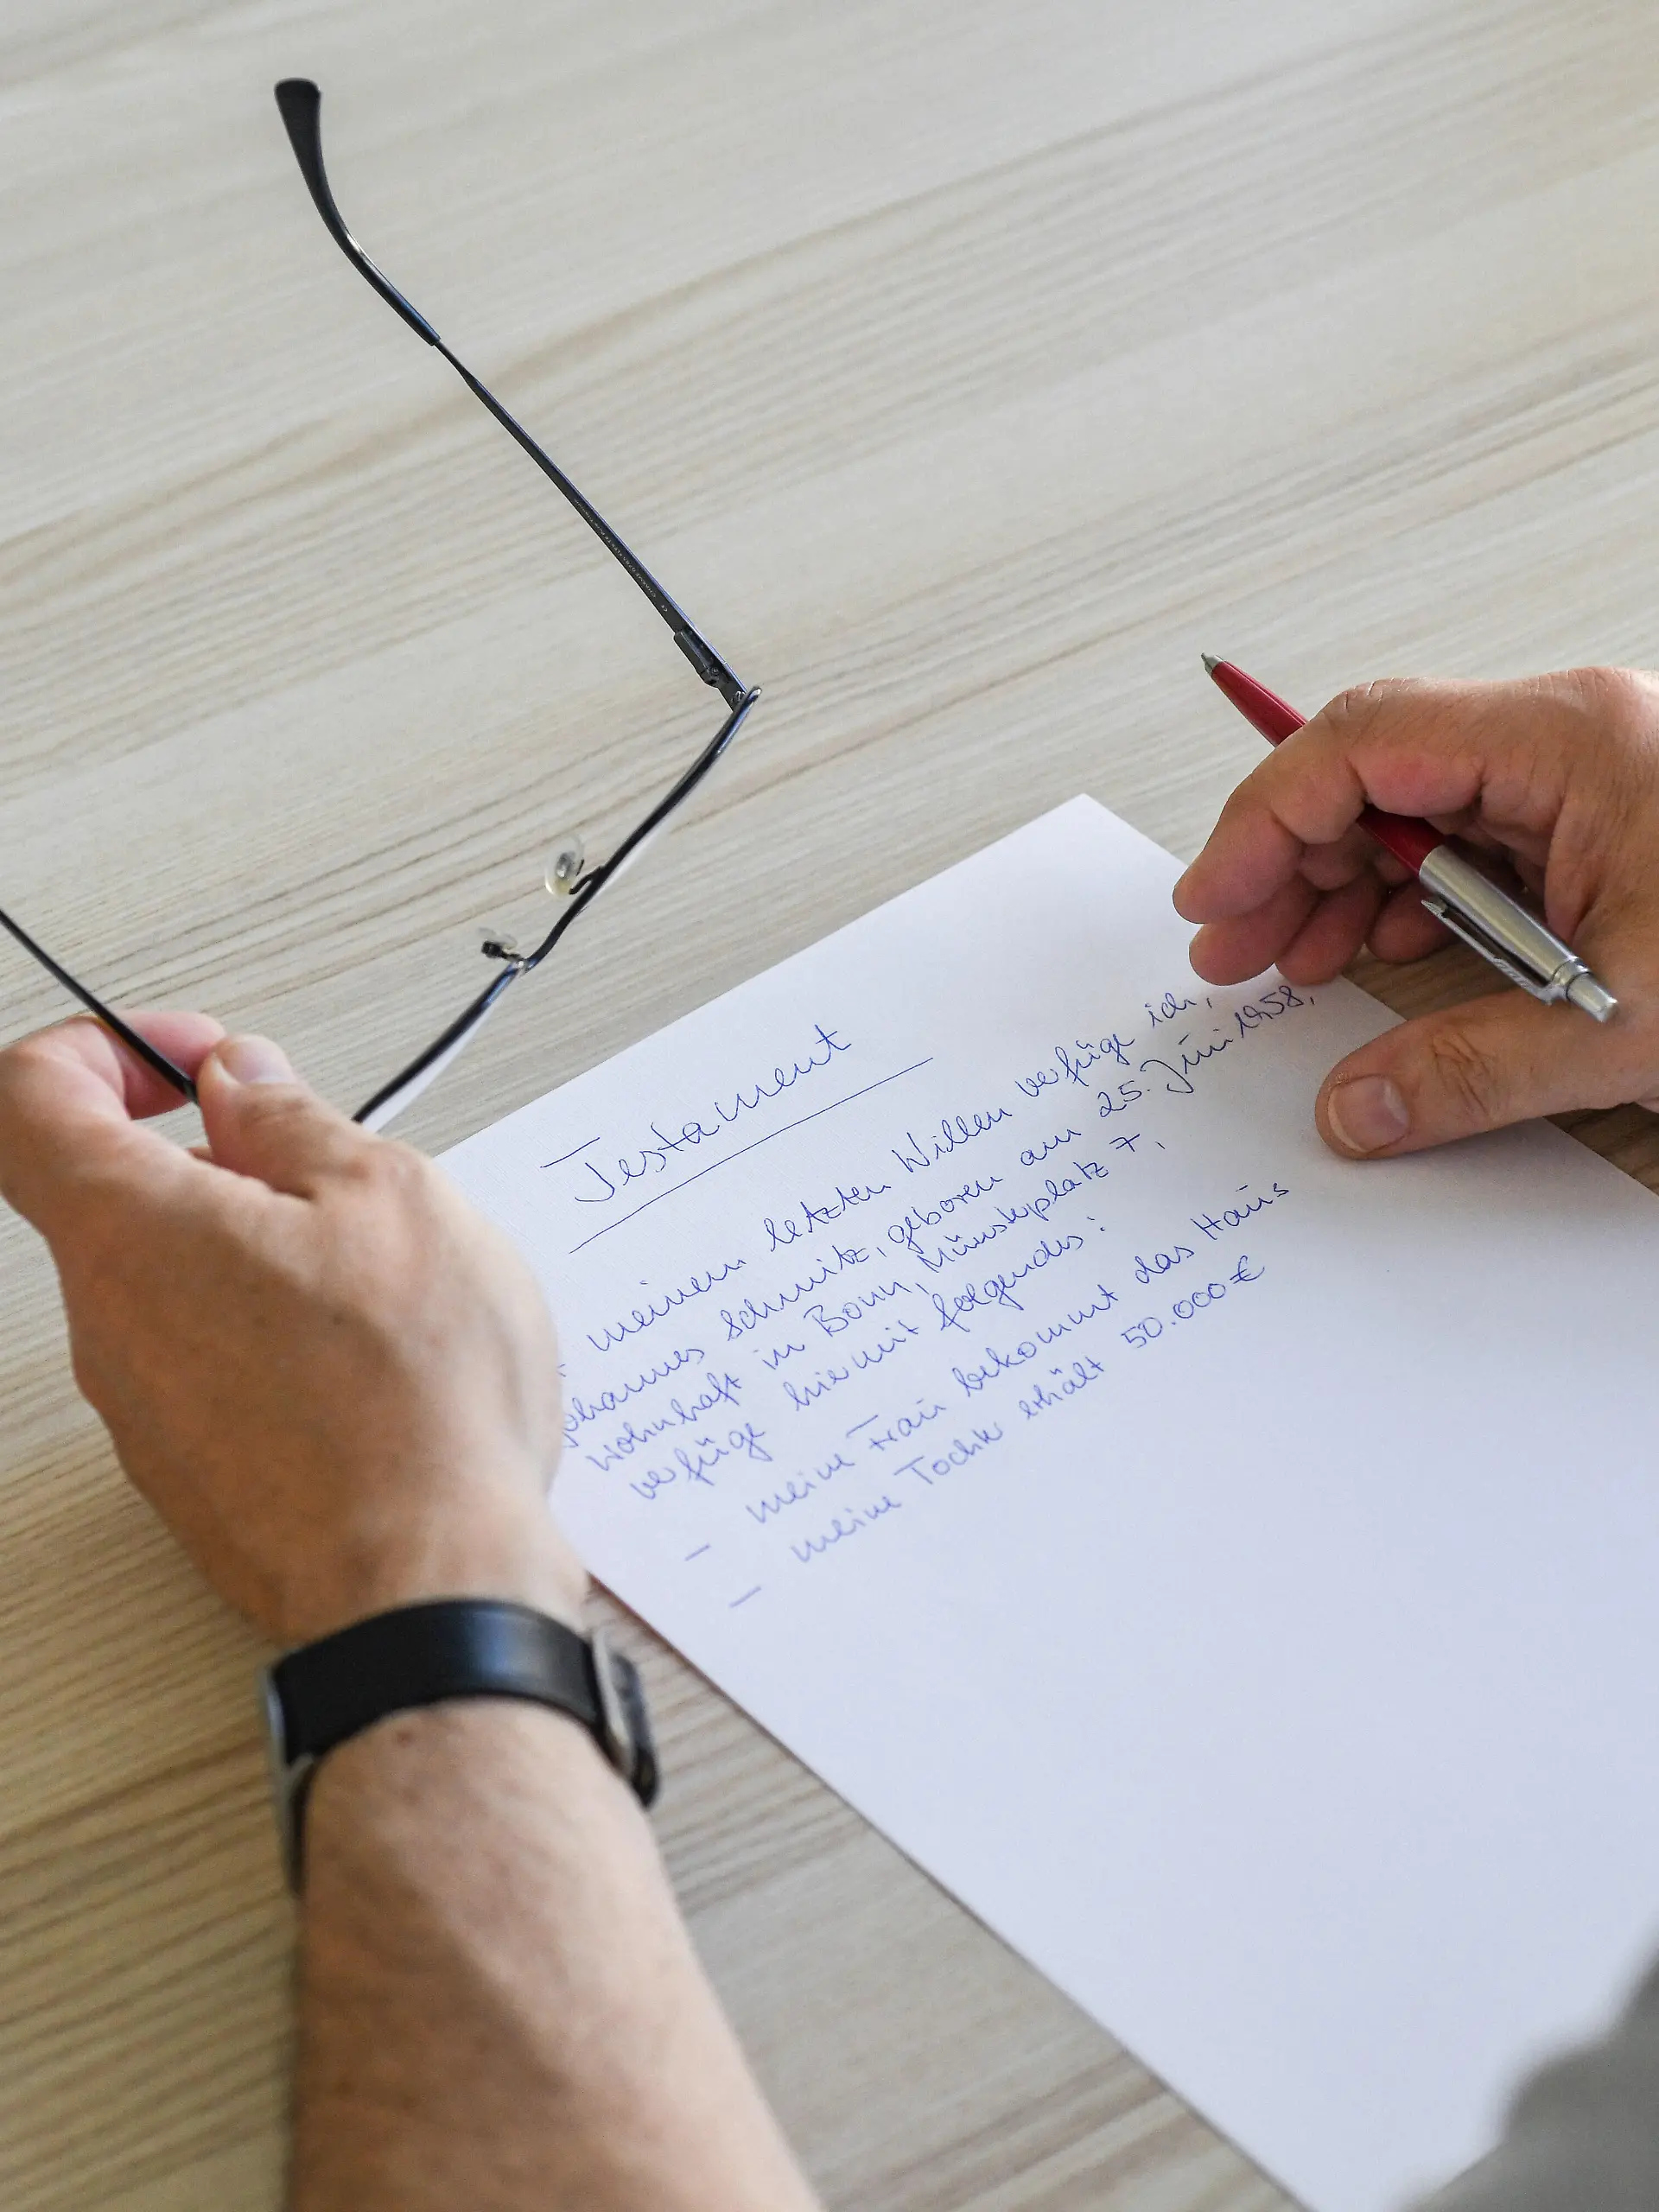 Testament
meinem letzten Willen verfüge ich,
Johannes Schmitz, geboren am 25. Juni 1958,
wohnhaft in Bonn, Münsterplatz 7,
verfüge hiermit folgendes:
– meine Frau bekommt das Haus
– meine Tochter erhält 50.000 €